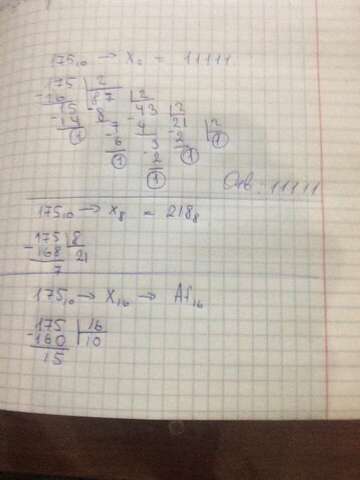 175₁₀ → X₂ = 11111
175 | 2
-16 | 87 | 2
15 -8 | 43 | 2
-14 7 -4 | 21 | 2
1 -6 3 -2 | 1
1 -2 1
1
Отв: 11111
175₁₀ → X₈ = 218₈
175 | 8
-168 | 21
7
175₁₀ → X₁₆ → Af₁₆
175 | 16
-160 | 10
15